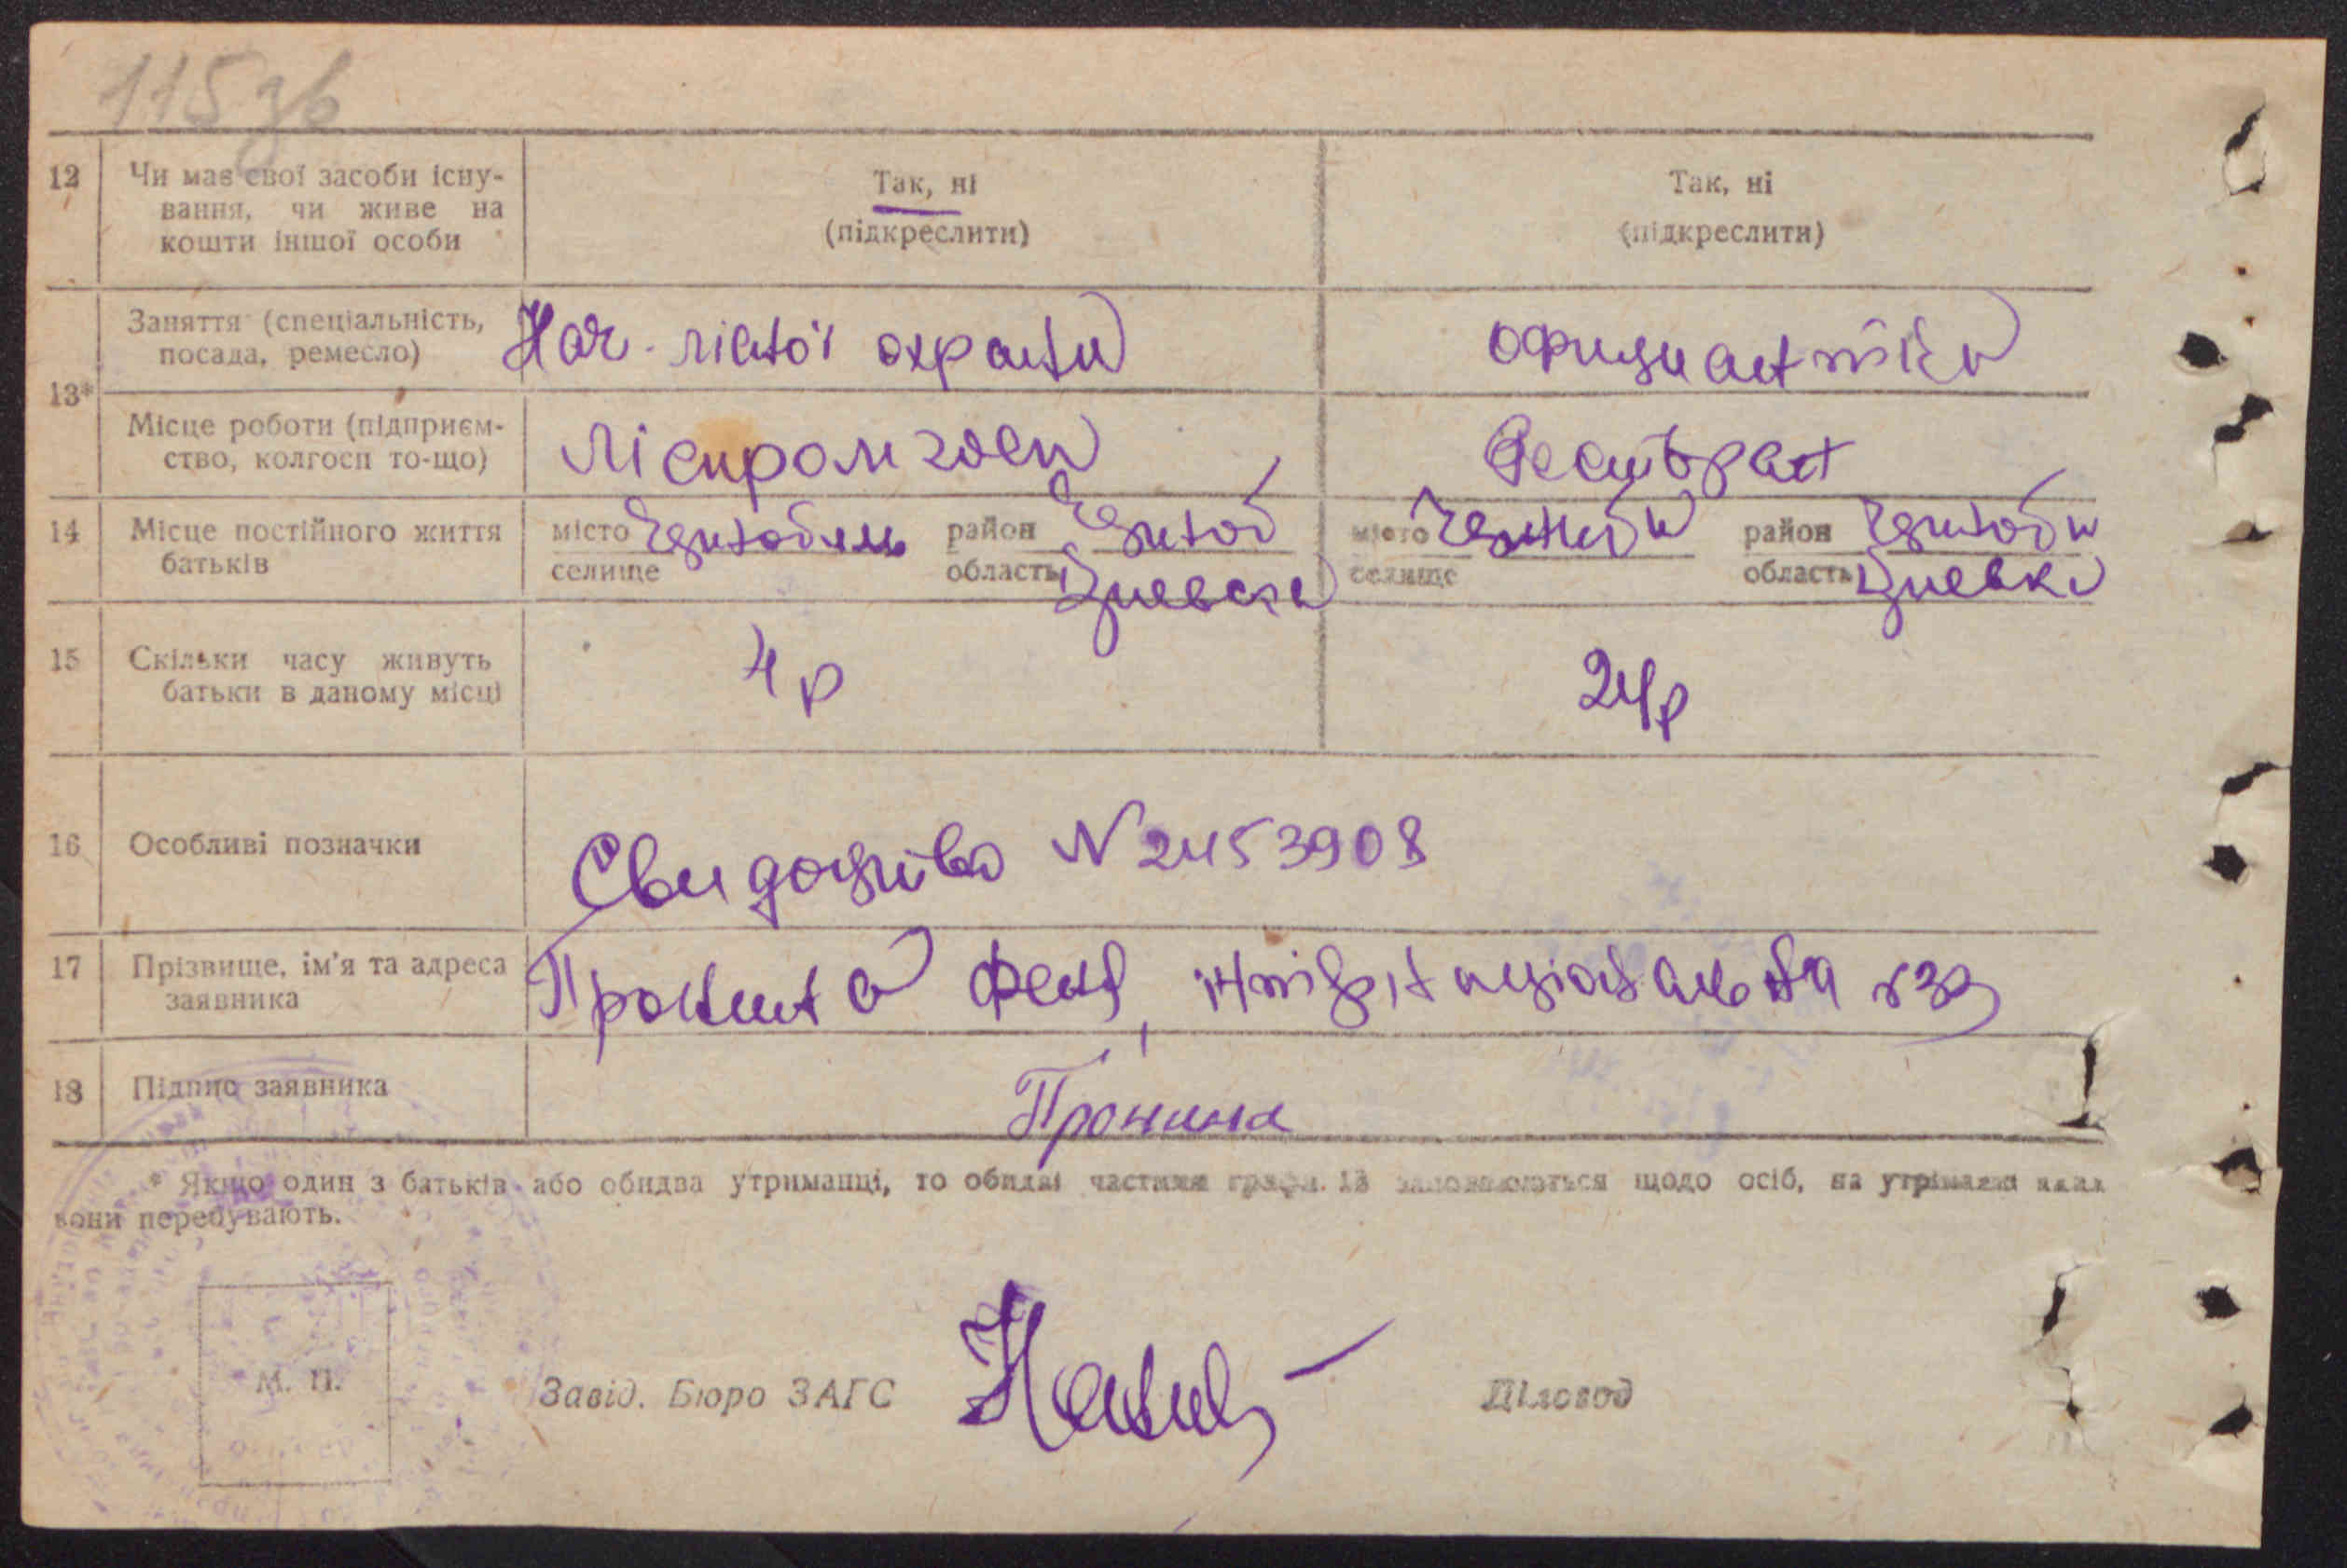 115 зв
12 Чи має свої засоби існу- Так, ні Так, ні
вання, чи живе на (підкреслити) (підкреслити)
кошти іншої особи
Заняття (спеціальність, Нач. лісної охрани официантка
посада, ремесло)
13*
Місце роботи (підприєм- Ліспромхоз Ресторан
ство, колгосп то-що)
14 Місце постійного життя місто Чернобиль район Черноб місто район Черноб
батьків селище область Киевска селище область
15 Скільки часу живуть 4 р 24 р
батьки в даному місці
16 Особливі позначки Свидоцтво N 2453908
17 Прізвище, ім'я та адреса Пронина Феня, інтернаціональна
заявника
18 Підпис заявника Пронина
* Якщо один з батьків або обидва утриманці, то обидві частини графи 13 заповнюються щодо осіб, на утриманні яких
вони перебувають.
М. П.
Завід. Бюро ЗАГС Діловод